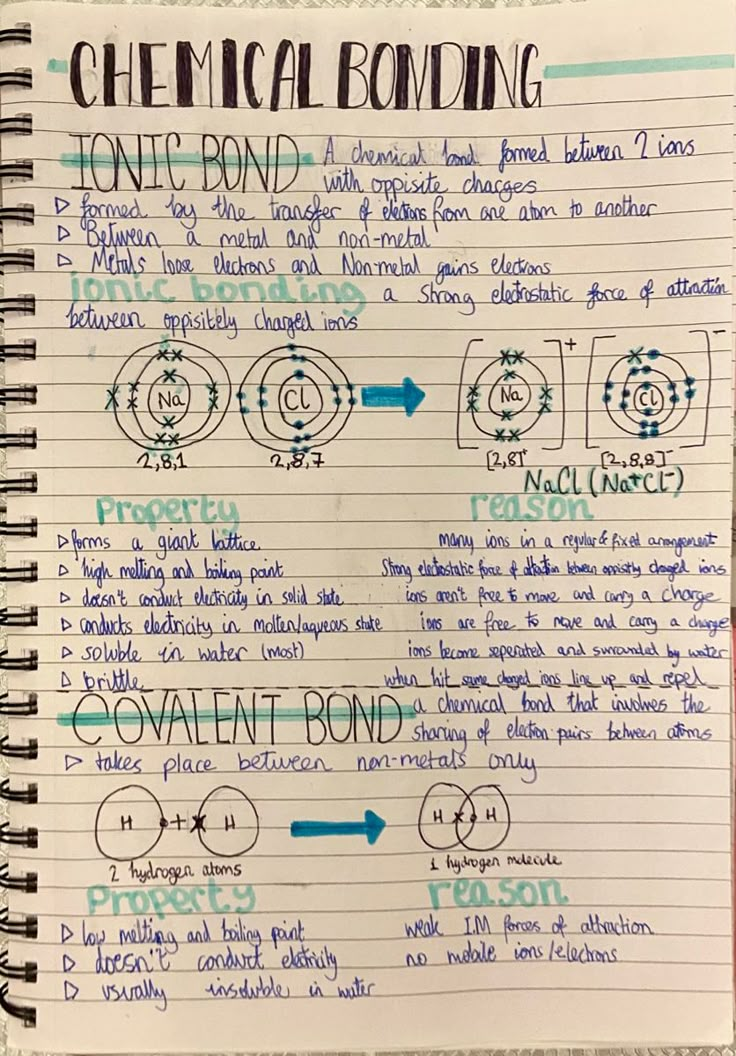 CHEMICAL BONDING
IONIC BOND A chemical bond formed between 2 ions
with oppisite charges
▷ formed by the transfer of electrons from one atom to another
▷ Between a metal and non-metal
▷ Metals loose electrons and Non-metal gains electrons
ionic bonding a strong electrostatic force of attraction
between oppisitely charged ions
Na Cl Na + Cl -
2,8,1 2,8,7 [2,8]⁺ [2,8,8]⁻
NaCl (Na⁺Cl⁻)
Property reason
▷ forms a giant lattice many ions in a regular & fixed arrangement
▷ high melting and boiling point Strong electrostatic force of attraction between oppisitly charged ions
▷ doesn't conduct electricity in solid state ions aren't free to move and carry a charge
▷ conducts electricity in molten/aqueous state ions are free to move and carry a charge
▷ soluble in water (most) ions become seperated and surrounded by water
▷ brittle when hit same charged ions line up and repel
COVALENT BOND a chemical bond that involves the
sharing of electron pairs between atoms
▷ takes place between non-metals only
H + H H H
2 hydrogen atoms 1 hydrogen molecule
Property reason
▷ low melting and boiling point weak I.M forces of attraction
▷ doesn't conduct electricity no mobile ions/electrons
▷ usually insoluble in water